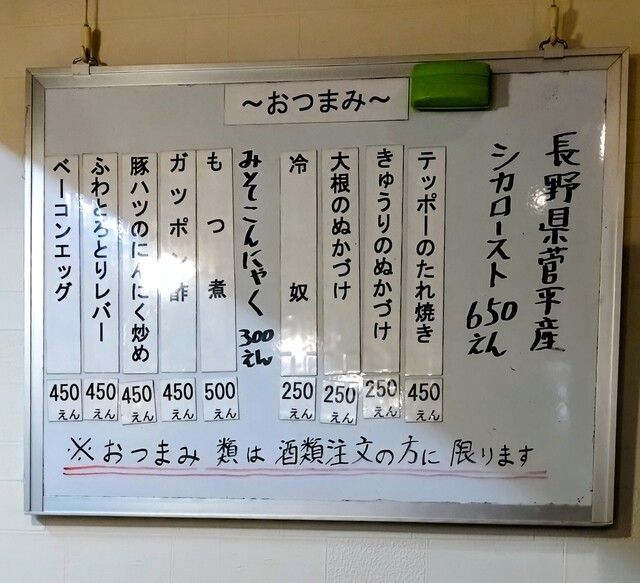 ～おつまみ～
長野県菅平産
シカロースト 650えん
テッポーのたれ焼き 450えん
きゅうりのぬかづけ 250えん
大根のぬかづけ 250えん
冷奴 250えん
みそこんにゃく 300えん
もつ煮 500えん
ガツポン酢 450えん
豚ハツのにんにく炒め 450えん
ふわとろとりレバー 450えん
ベーコンエッグ 450えん
※おつまみ類は酒類注文の方に限ります